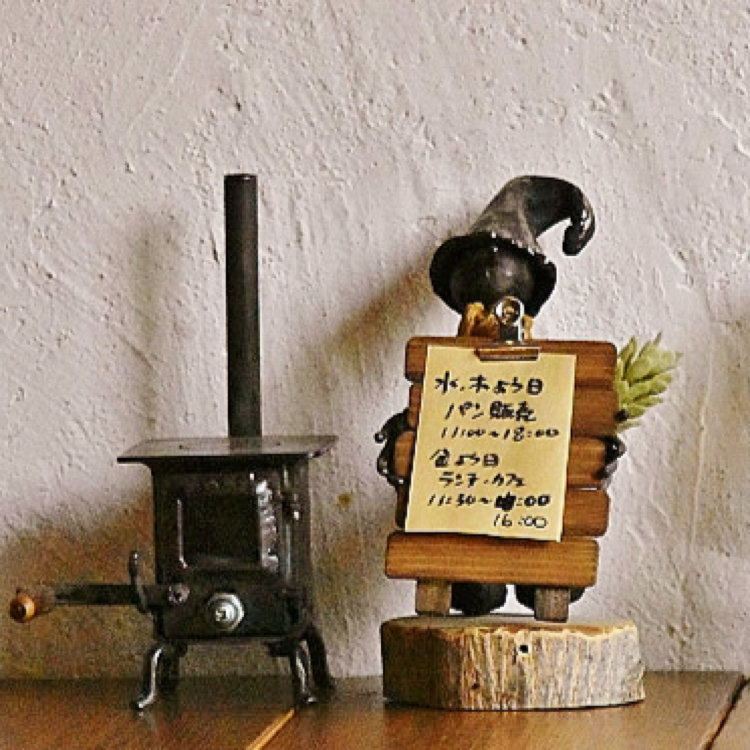 水、木よう日
パン販売
11:00〜18:00
金よう日
ランチ・カフェ
11:30〜:00
16:00